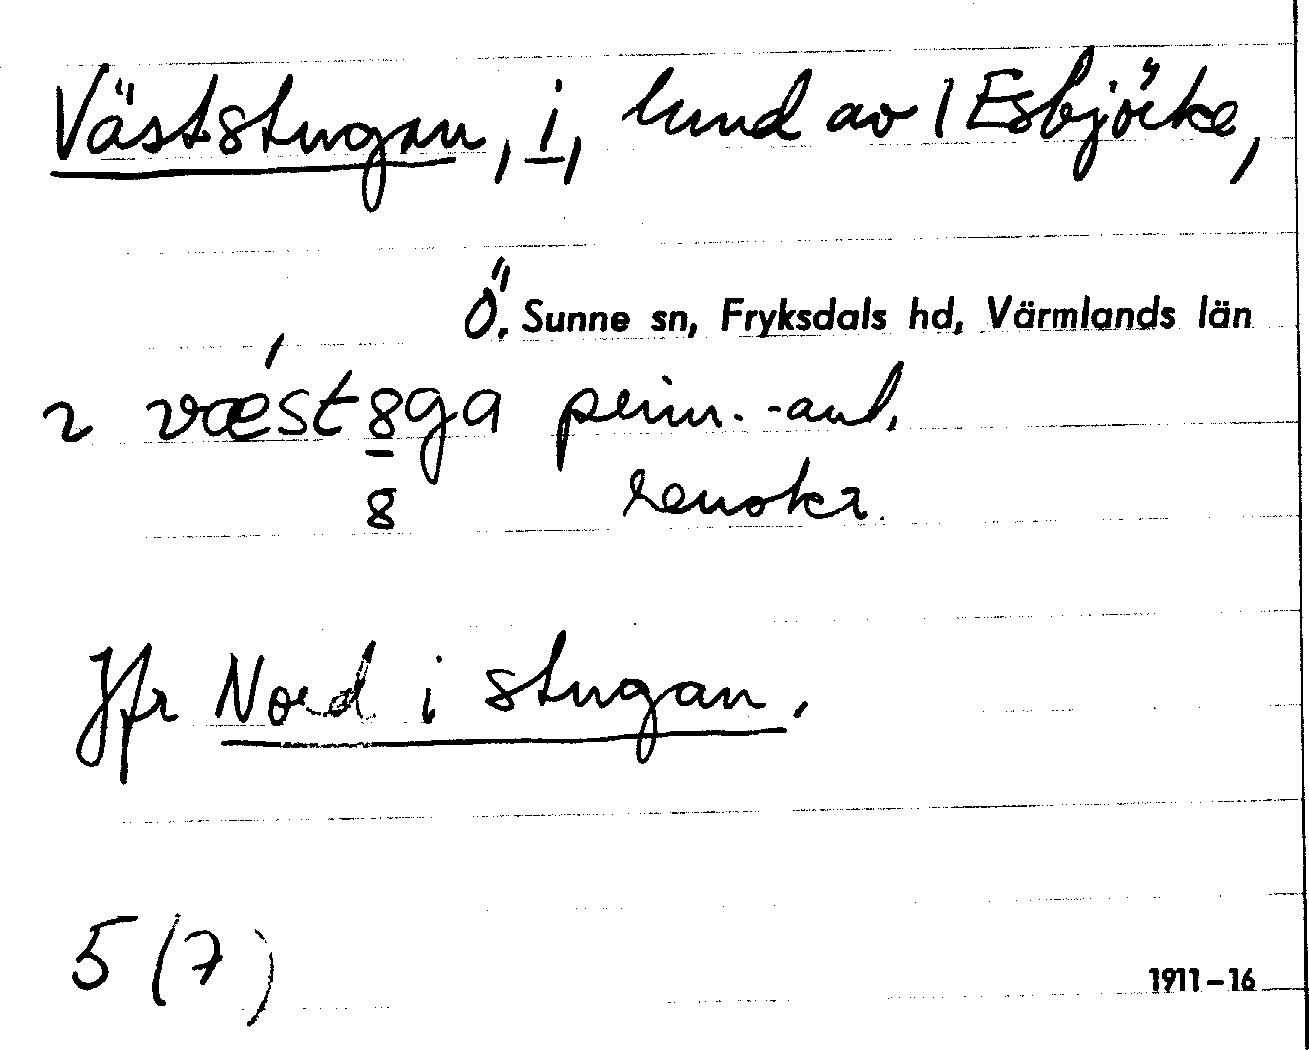 Väststugan, i, lund av 1 Esbjörke,
Ö. Sunne sn, Fryksdals hd, Värmlands län
væst8ga
8
Jfr Nord i stugan.
5 (7)
1911–16